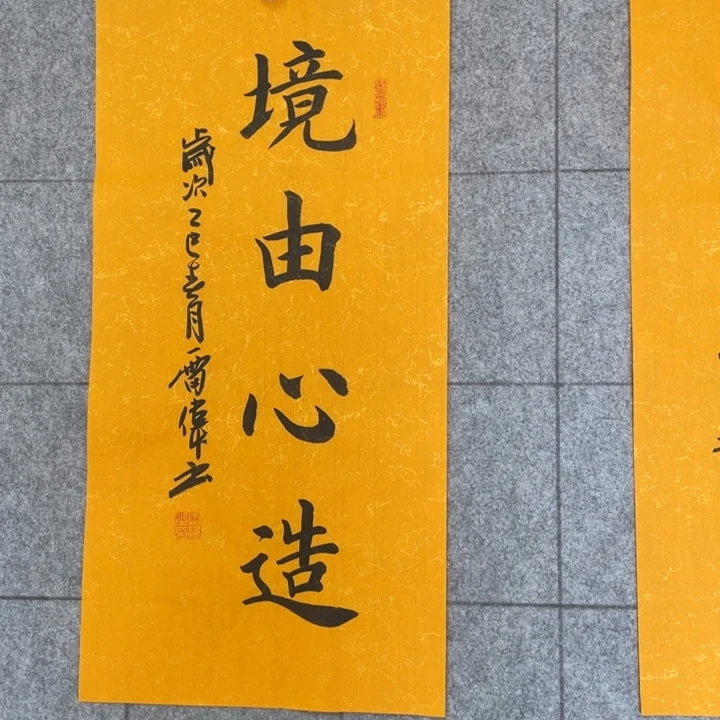 境由心造
歲次乙巳春月雷偉书